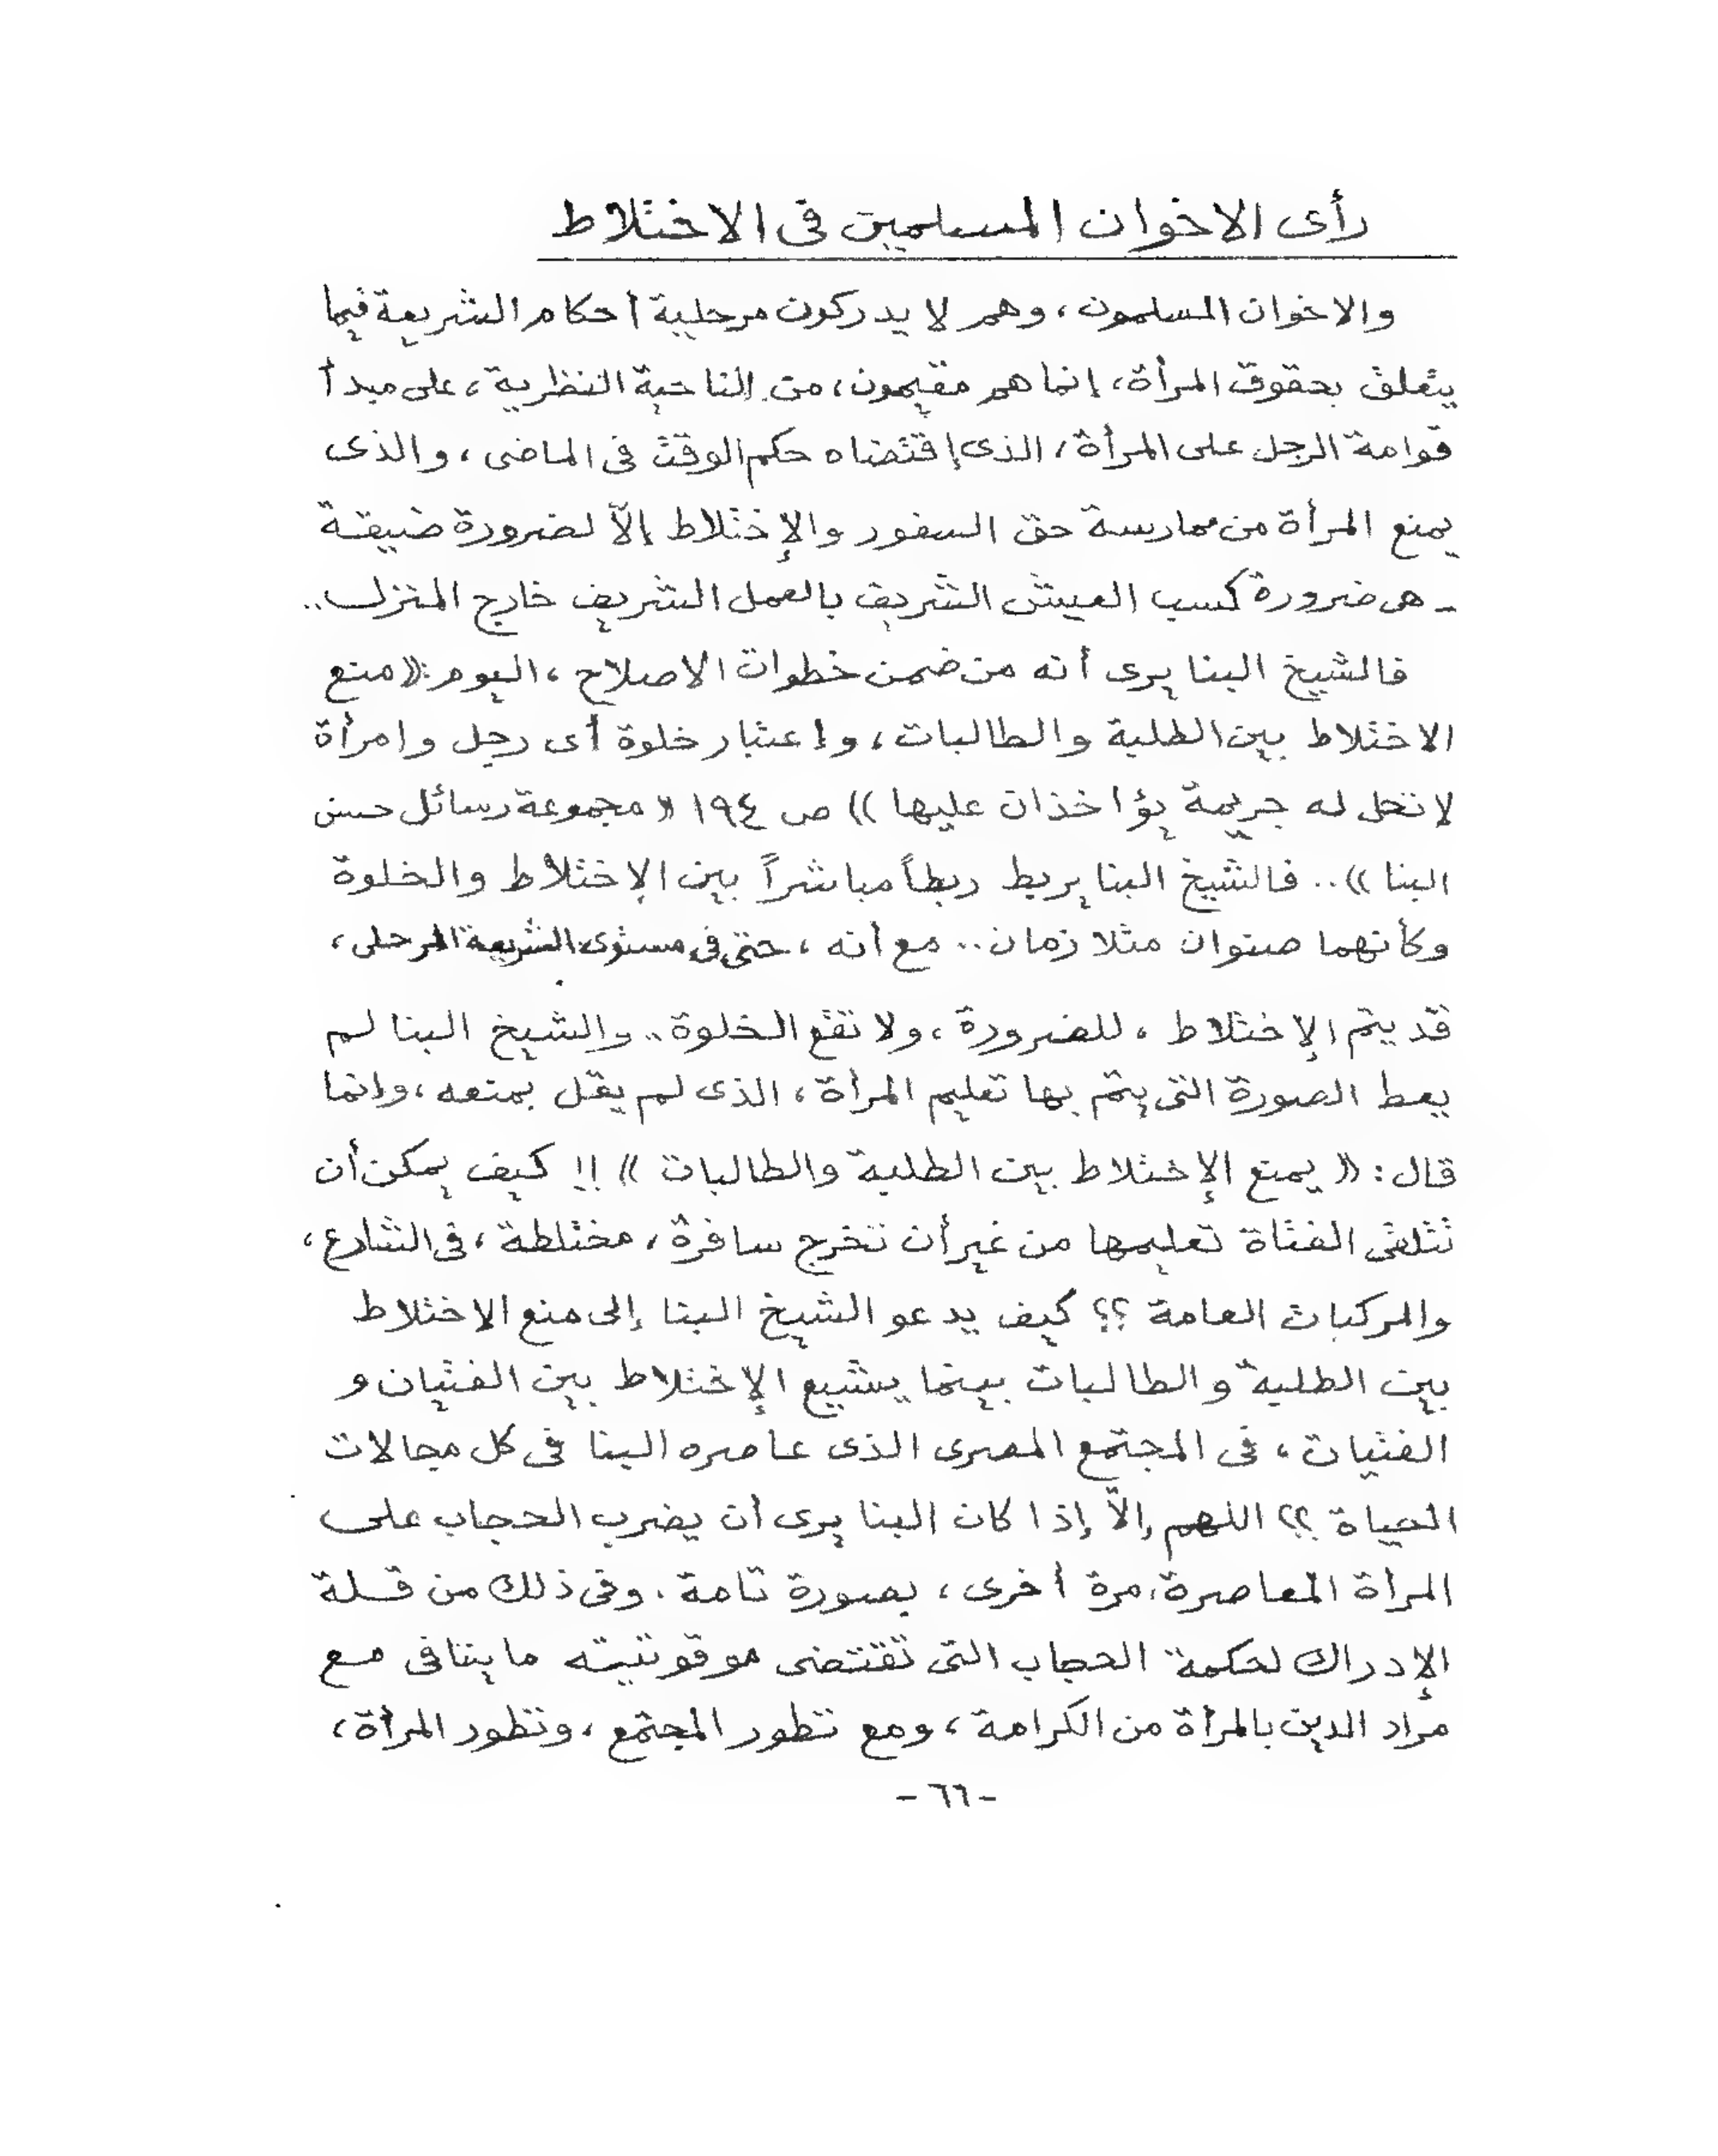 رأى الاخوان المسلمين فى الاختلاط
والاخوان المسلمون، وهم لا يدركون مرحلية أحكام الشريعة فيما
يتعلق بحقوق المرأة، إنما هم مقيمون، من الناحية النظرية، على مبدأ
قوامة الرجل على المرأة، الذى إقتضاه حكم الوقت فى الماضى، والذى
يمنع المرأة من ممارسة حق السفور والإختلاط إلاّ لضرورة ضيقة
ـ هى ضرورة كسب العيش الشريف بالعمل الشريف خارج المنزل..
فالشيخ البنا يرى أنه من ضمن خطوات الاصلاح، اليوم: ((منع
الاختلاط بين الطلبة والطالبات، وإعتبار خلوة أى رجل وامرأة
لا تحل له جريمة يؤاخذان عليها)) ص ١٩٤ ((مجموعة رسائل حسن
البنا)).. فالشيخ البنا يربط ربطاً مباشراً بين الإختلاط والخلوة
وكأنهما صنوان متلازمان.. مع أنه، حتى فى مستوى الشريعة المرحلى،
قد يتم الإختلاط، للضرورة، ولا تقع الخلوة.. والشيخ البنا لم
يعط الصورة التى يتم بها تعليم المرأة، الذى لم يقل بمنعه، وإنما
قال: ((يمنع الإختلاط بين الطلبة والطالبات)) !! كيف يمكن أن
تتلقى الفتاة تعليمها من غير أن تخرج سافرة، مختلطة، فى الشارع،
والمركبات العامة ؟؟ كيف يدعو الشيخ البنا إلى منع الاختلاط
بين الطلبة والطالبات بينما يشيع الإختلاط بين الفتيان و
الفتيات، فى المجتمع المصرى الذى عاصره البنا فى كل مجالات
الحياة ؟؟ اللهم إلاّ إذا كان البنا يرى أن يضرب الحجاب على
المرأة المعاصرة، مرة أخرى، بصورة تامة. وفى ذلك من قلة
الإدراك لحكمة الحجاب التى تقتضى موقوتيته ما يتنافى مع
مراد الدين بالمرأة من الكرامة، ومع تطور المجتمع، وتطور المرأة،
- ٦٦ -